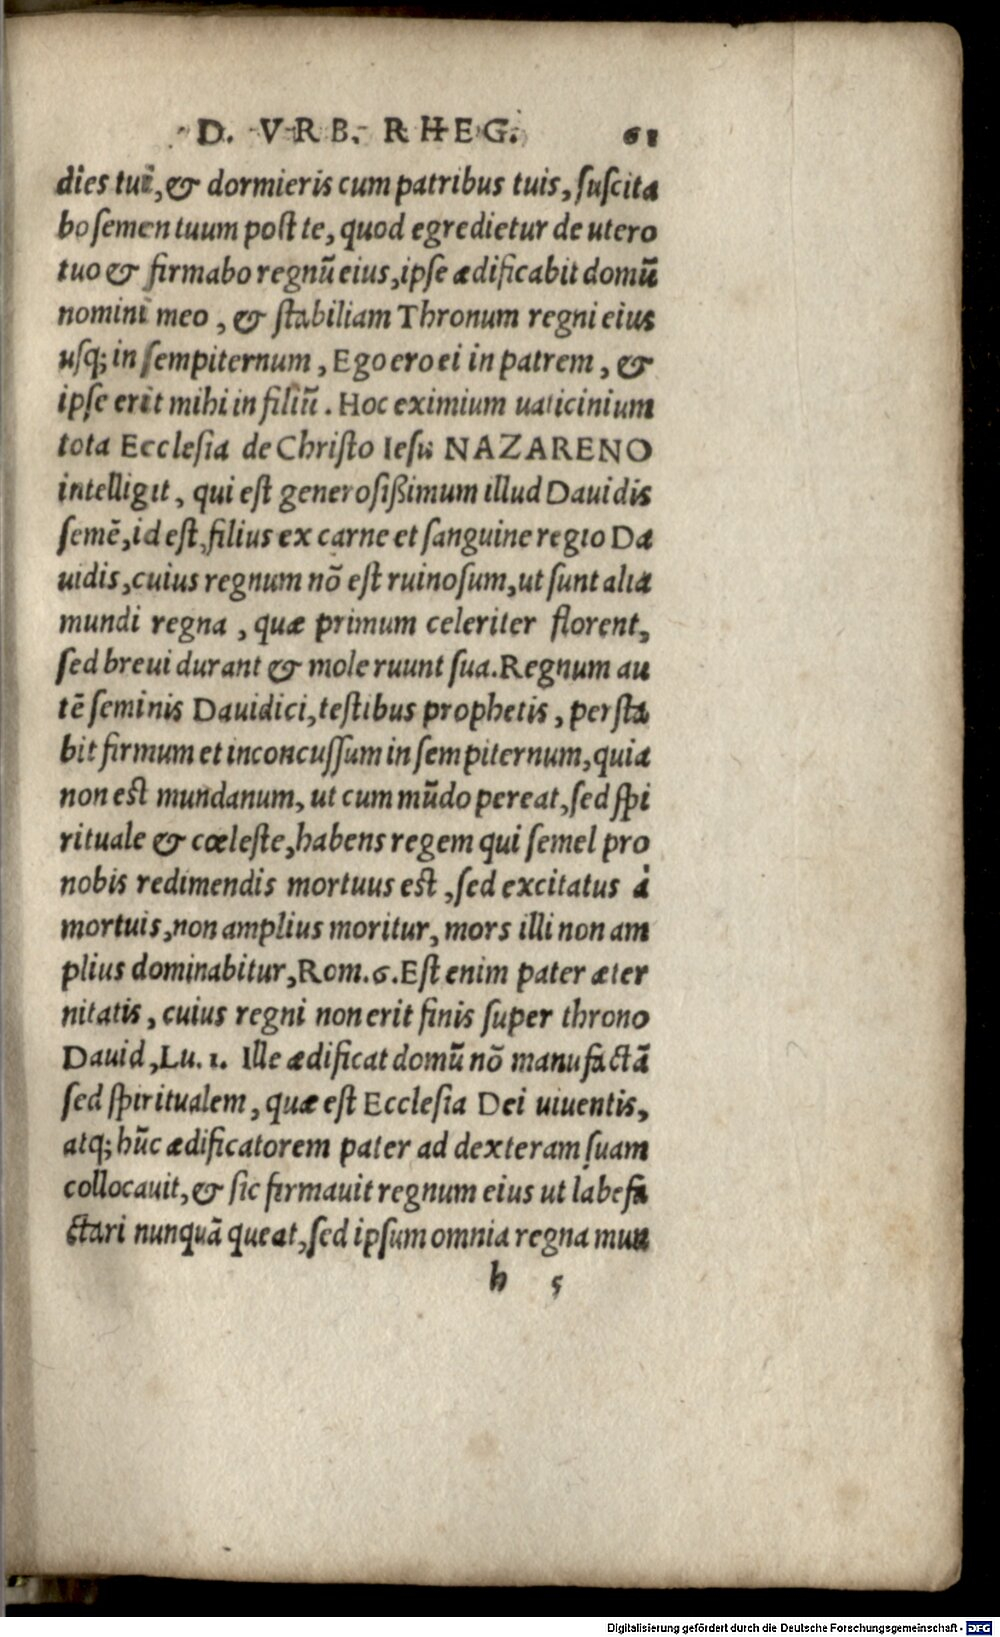 D. VRB. RHEG. 61
dies tui, & dormieris cum patribus tuis, ſuſcita
bo ſemen tuum poſt te, quod egredietur de utero
tuo & firmabo regnū eius, ipſe ædificabit domū
nomini meo, & ſtabiliam Thronum regni eius
uſq; in ſempiternum, Ego ero ei in patrem, &
ipſe erit mihi in filiū. Hoc eximium uaticinium
tota Eccleſia de Chriſto Ieſu NAZARENO
intelligit, qui eſt generoſißimum illud Dauidis
ſemē, id eſt, filius ex carne et ſanguine regio Da
uidis, cuius regnum nō eſt ruinoſum, ut ſunt alia
mundi regna, quæ primum celeriter florent,
ſed breui durant & mole ruunt ſua. Regnum au
tē ſeminis Dauidici, teſtibus prophetis, perſta
bit firmum et inconcuſſum in ſempiternum, quia
non eſt mundanum, ut cum mūdo pereat, ſed ſpi
rituale & cœleſte, habens regem qui ſemel pro
nobis redimendis mortuus eſt, ſed excitatus à
mortuis, non amplius moritur, mors illi non am
plius dominabitur, Rom. 6. Eſt enim pater æter
nitatis, cuius regni non erit finis ſuper throno
Dauid, Lu. 1. Ille ædificat domū nō manufactā
ſed ſpiritualem, quæ eſt Eccleſia Dei uiuentis,
atq; hūc ædificatorem pater ad dexteram ſuam
collocauit, & ſic firmauit regnum eius ut labefa
ctari nunquā queat, ſed ipſum omnia regna mun
h 5
Digitalisierung gefördert durch die Deutsche Forschungsgemeinschaft - DFG